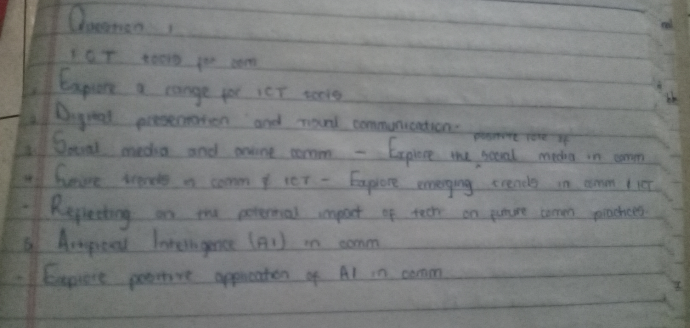 Question 1
ICT tools for comm
1. Explore a range for ICT tools
2. Digital presentation and visual communication.
positive role of
3. Social media and online comm - Explore the social media in comm
4 Future trends in comm & ICT - Explore emerging trends in comm & ICT
- Reflecting on the potential impact of tech on future comm
5 Artificial Intelligence (AI) in comm
- Explore positive application of AI in comm